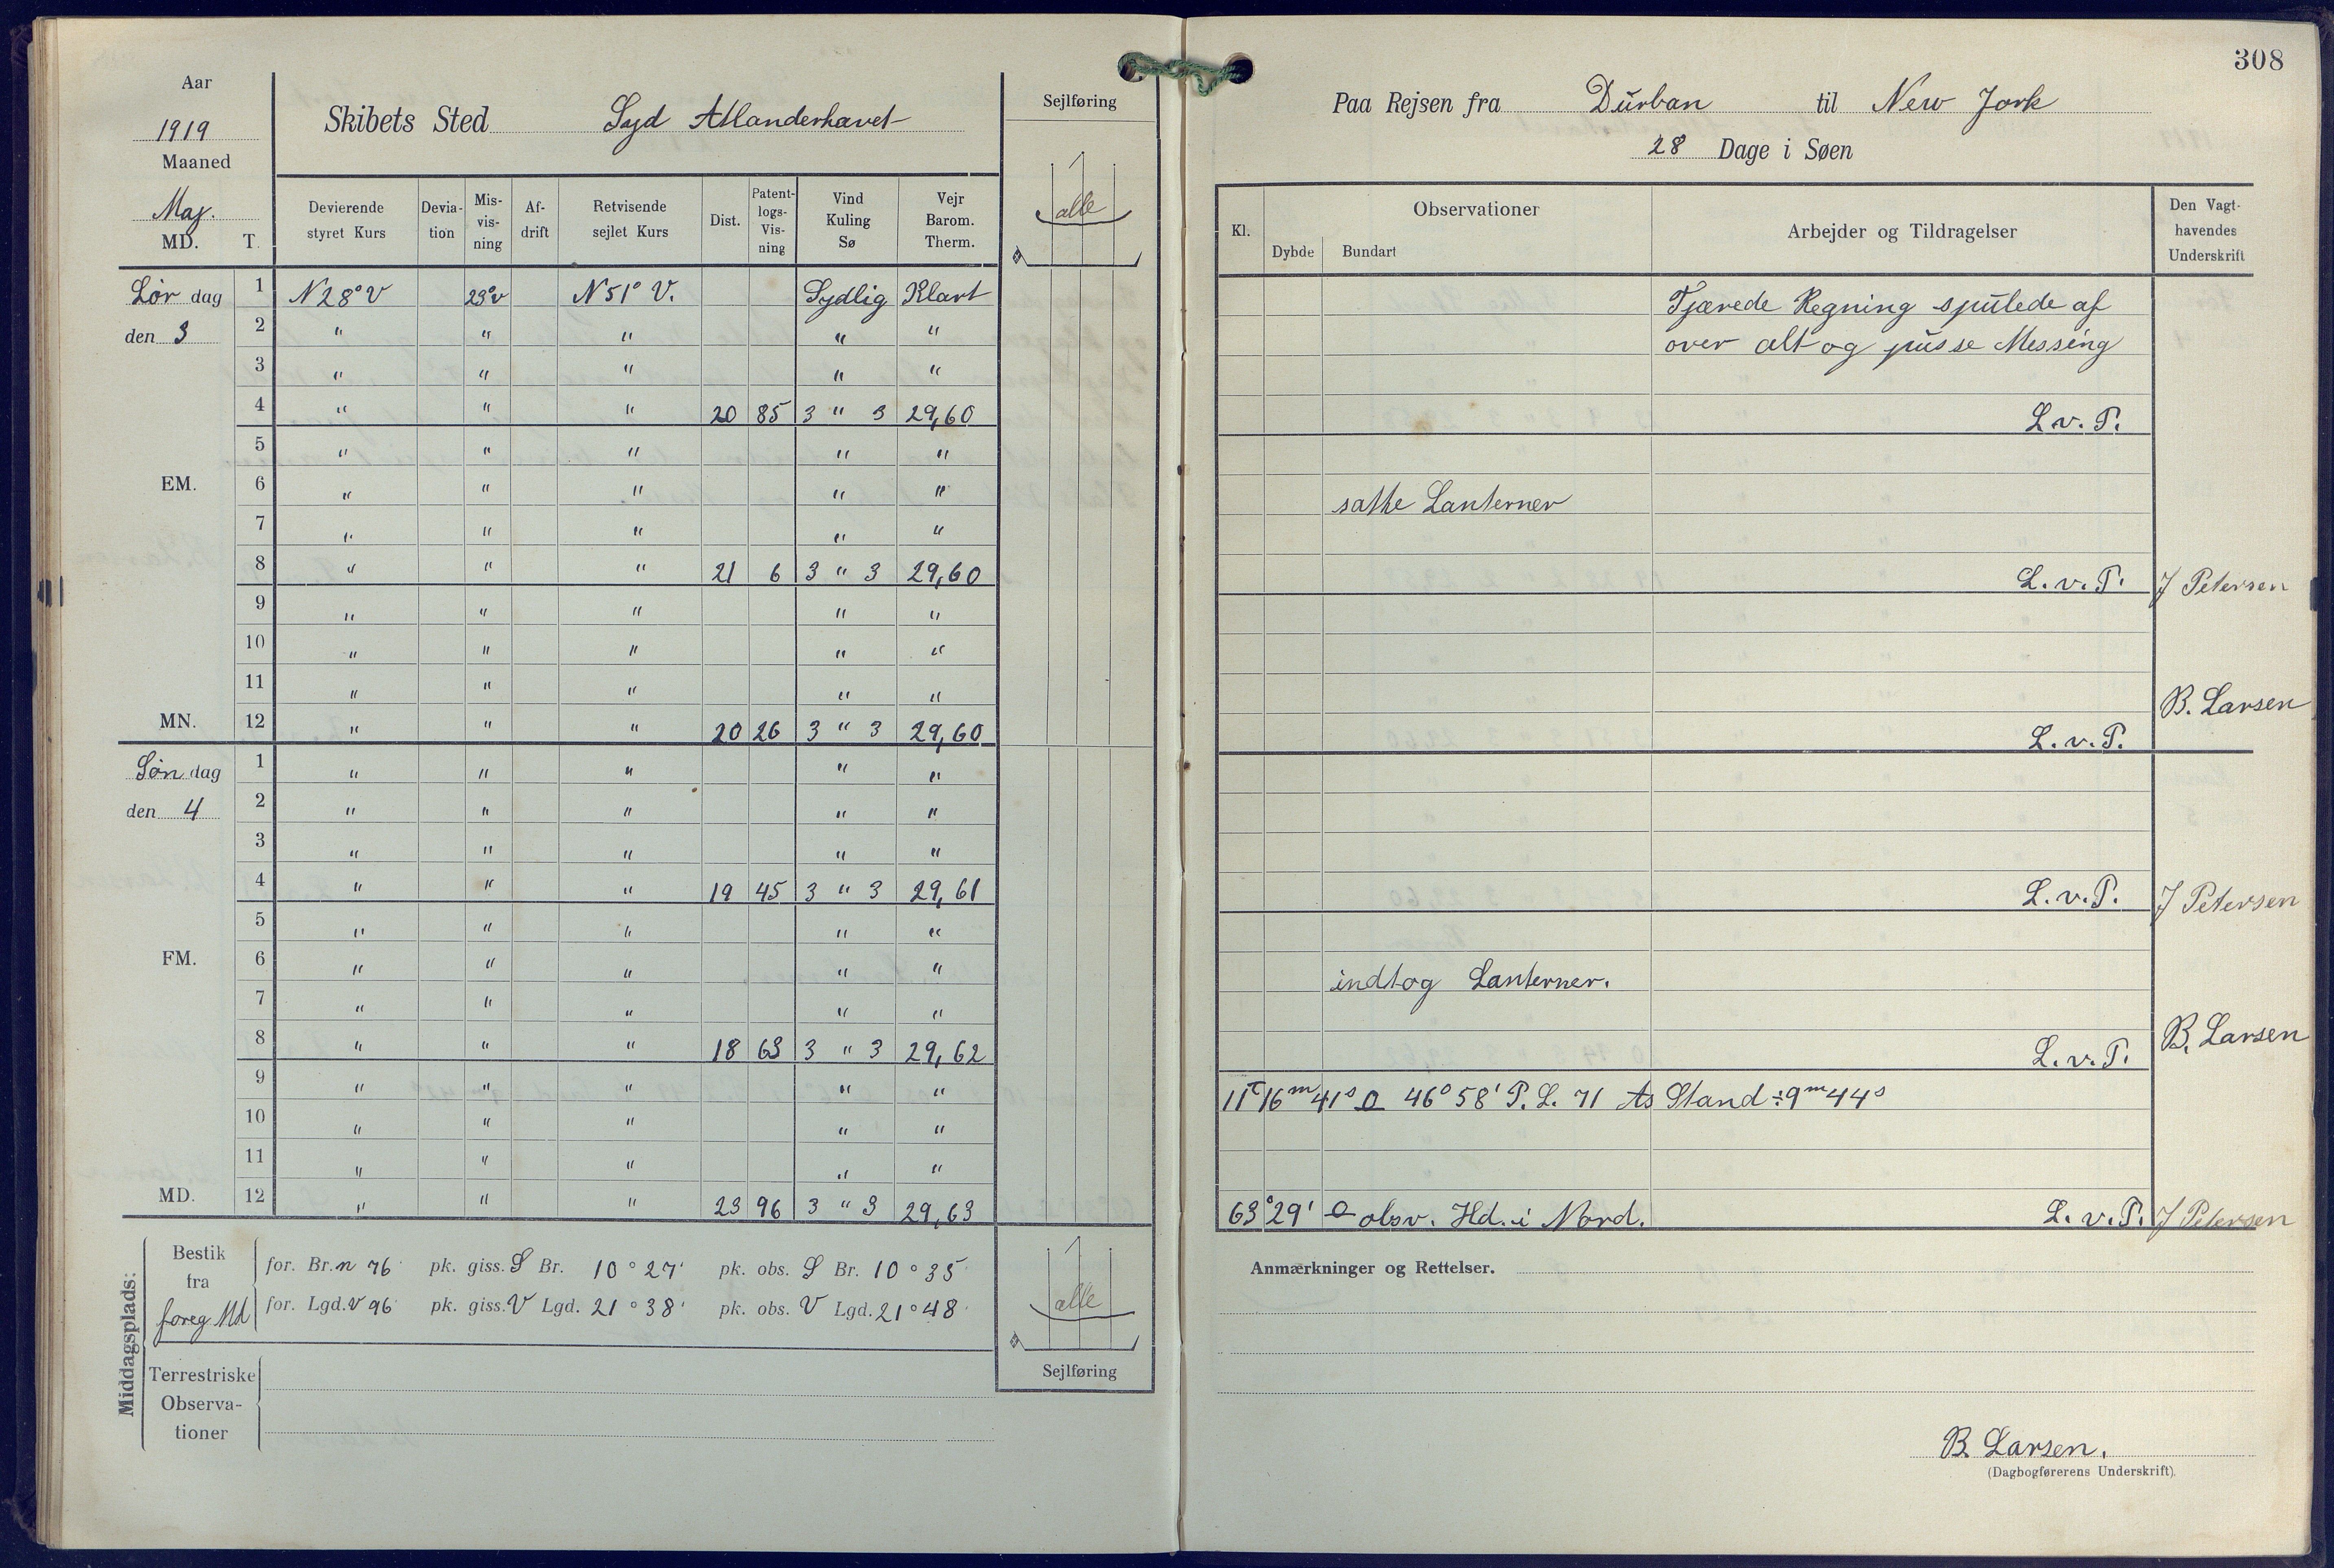 308
Aar
1919
Maaned
Maj.
MD. T.
Skibets Sted Syd Atlanderhavet
Sejlføring
alle
Devierende styret Kurs
Deviation
Misvisning
Afdrift
Retvisende sejlet Kurs
Dist.
Patentlogs-Visning
Vind Kuling Sø
Vejr Barom. Therm.
Lørdag den 3
1 N 28° V 23° v N 51° V. Sydlig Klart
2 " " " " "
3 " " " " "
4 " " " 20 85 3 " 3 29,60
5 " " " " "
EM. 6 " " " " "
7 " " " " "
8 " " " 21 6 3 " 3 29,60
9 " " " " "
10 " " " " "
11 " " " " "
MN. 12 " " " 20 26 3 " 3 29,60
Søndag den 4
1 " " " " "
2 " " " " "
3 " " " " "
4 " " " 19 45 3 " 3 29,61
5 " " " " "
FM. 6 " " " " "
7 " " " " "
8 " " " 18 63 3 " 3 29,62
9 " " " " "
10 " " " " "
11 " " " " "
MD. 12 " " " 23 96 3 " 3 29,63
Middagsplads:
Bestik fra foreg. Md
for. Br. n 76' pk. giss. S Br. 10° 27' pk. obs. S Br. 10° 35'
for. Lgd. V 96' pk. giss. V Lgd. 21° 38' pk. obs. V Lgd. 21° 48'
Terrestriske Observationer
alle
Sejlføring
Paa Rejsen fra Durban til New Jork
28 Dage i Søen
Kl.
Observationer
Dybde Bundart
Arbejder og Tildragelser
Den Vagthavendes Underskrift
Tjærede Regning spulede af
over alt og pusse Messing
L. v. P.
satte Lanterner
L. v. P. J Petersen
B. Larsen
L. v. P.
L. v. P. J Petersen
indtog Lanterner.
B. Larsen
L. v. P.
11 T 16 m 41 s 46° 58' P. L. 71 As Stand ÷ 9 m 44 s
63° 29' obsv. Hd. i Nord. L. v. P. J Petersen
Anmærkninger og Rettelser.
B. Larsen.
(Dagbogførerens Underskrift).